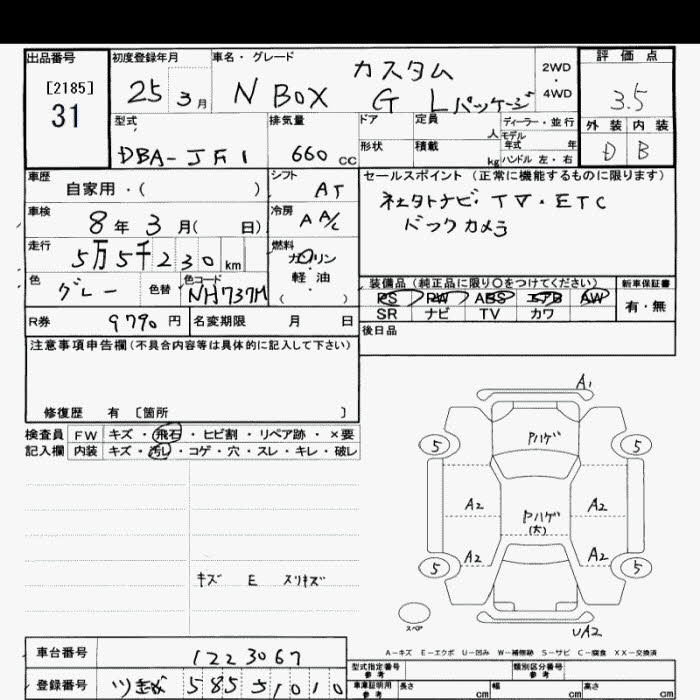 出品番号
[2185]
31
初度登録年月
25 3月
車名・グレード
カスタム
N BOX G Lパッケージ
2WD
・
4WD
評価点
3.5
外装 内装
D B
型式
DBA-JF1
排気量
660 cc
ドア
定員
人
ディーラー・並行
モデル
年式 年
形状
積載
kg
ハンドル 左・右
車歴
自家用・( )
シフト
AT
セールスポイント (正常に機能するものに限ります)
TV・ETC
車検
8年 3月( 日)
冷房
A A/C
バックカメラ
走行
5万5千230km
燃料
ガソリン
・
軽・油
( )
色
グレー
色替
色コード
NH737M
装備品(純正品に限り○をつけてください)
PS PW ABS エアB AW
SR ナビ TV カワ
新車保証書
有・無
R券
9790円
名変期限 月 日
後日品
注意事項申告欄(不具合内容等は具体的に記入して下さい)
修復歴 有 〔箇所 〕
検査員
記入欄
FW キズ・飛石・ヒビ割・リペア跡・×要
内装 キズ・汚レ・コゲ・穴・スレ・キレ・破レ
キズ E スリキズ
A1
Pハゲ
5 5
A2 A2
Pハゲ
(大)
A2 A2
5 5
スペア
UA2
A-キズ E-エクボ U-凹み W-補修跡 S-サビ C-腐食 XX-交換済
車台番号
1223067
登録番号
585 51010
型式指定番号
参考
類別区分番号
参考
車庫証明用
参考
長さ cm
幅 cm
高さ cm